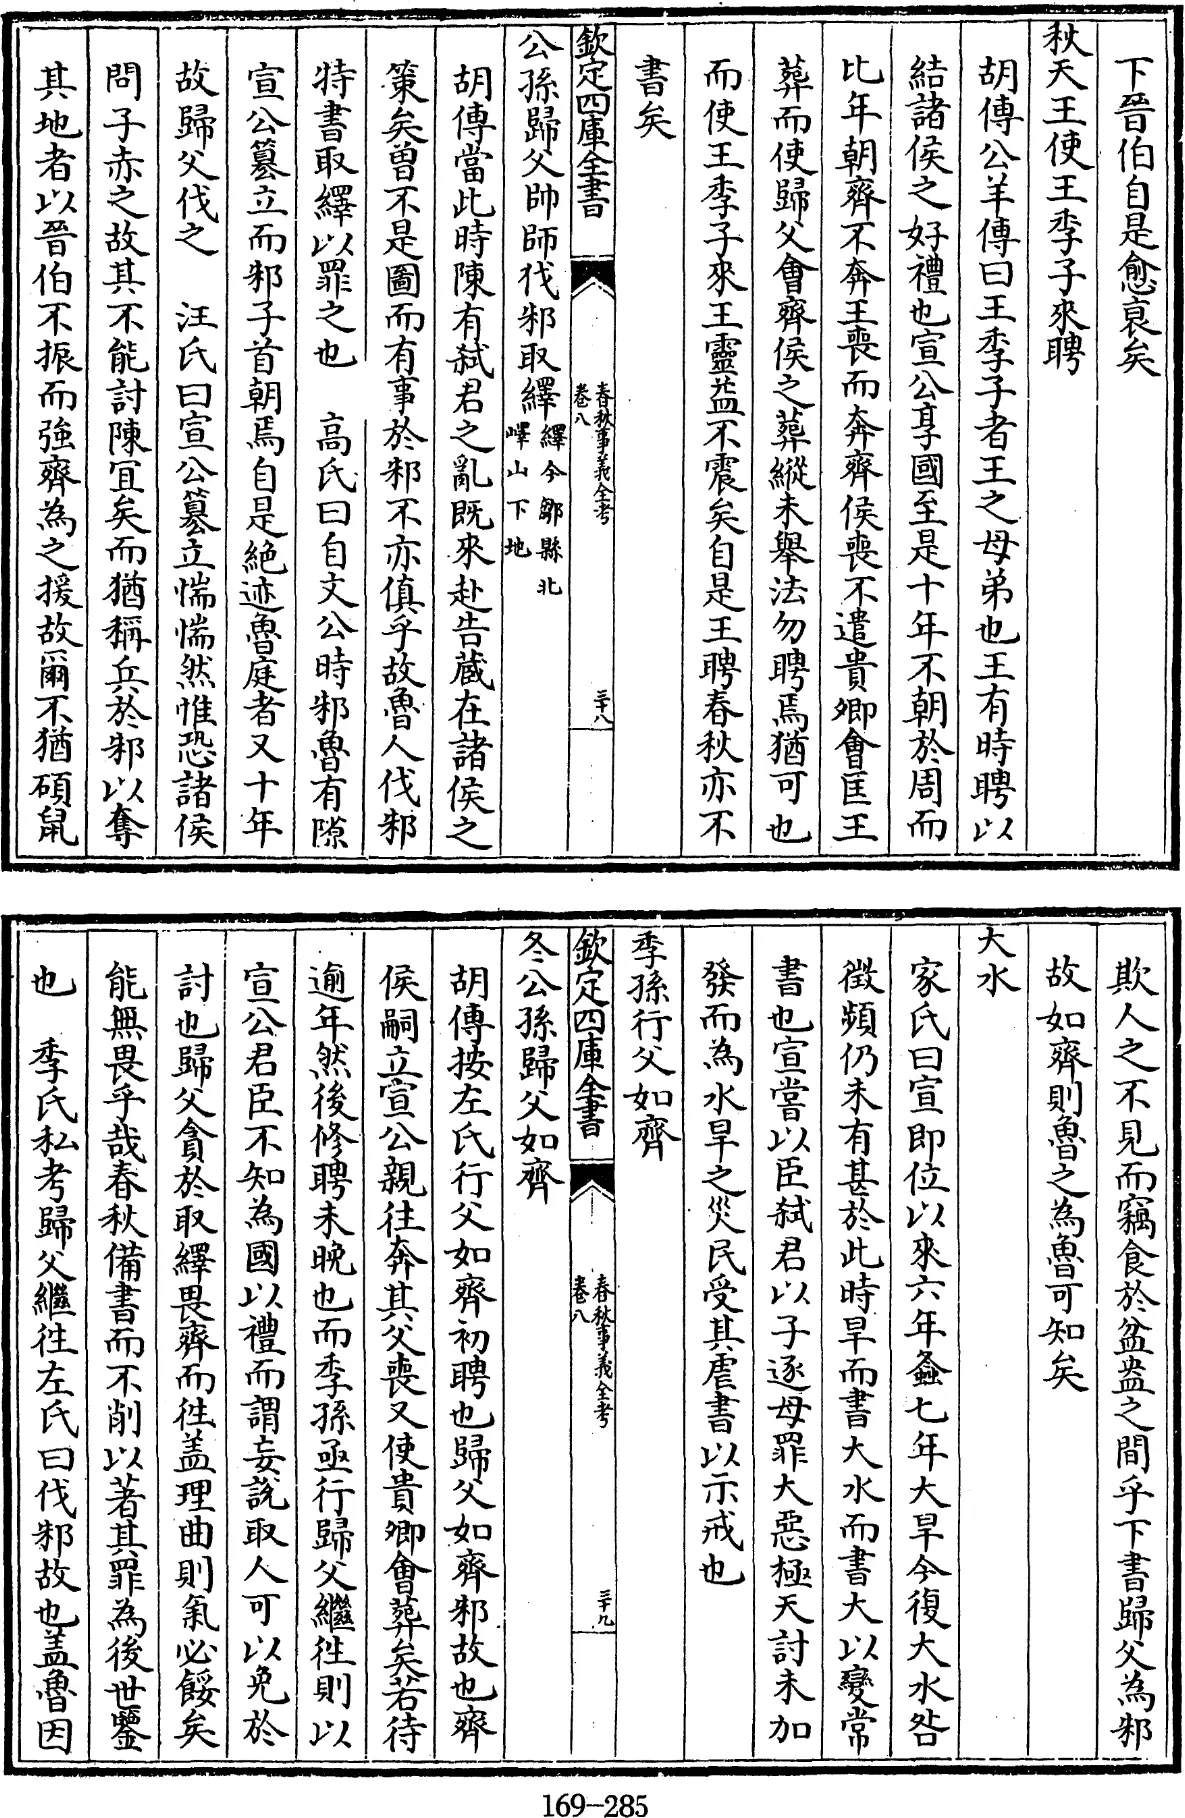 下晉伯自是愈衰矣
秋天王使王季子來聘
胡傳公羊傳曰王季子者王之母弟也王有時聘以
結諸侯之好禮也宣公享國至是十年不朝於周而
比年朝齊不奔王喪而奔齊侯喪不遣貴卿會匡王
葬而使歸父會齊侯之葬縱未舉法勿聘焉猶可也
而使王季子來王靈益不震矣自是王聘春秋亦不
書矣
欽定四庫全書
春秋事義全考
卷八
三十八
公孫歸父帥師伐邾取繹繹今鄒縣北
嶧山下地
胡傳當此時陳有弑君之亂既來赴告藏在諸侯之
策矣曾不是圖而有事於邾不亦傎乎故魯人伐邾
特書取繹以罪之也　高氏曰自文公時邾魯有隙
宣公簒立而邾子首朝焉自是絶迹魯庭者又十年
故歸父伐之　汪氏曰宣公簒立惴惴然惟恐諸侯
問子赤之故其不能討陳宜矣而猶稱兵於邾以奪
其地者以晉伯不振而強齊為之援故爾不猶碩鼠
欺人之不見而竊食於盆盎之間乎下書歸父為邾
故如齊則魯之為魯可知矣
大水
家氏曰宣即位以來六年螽七年大旱今復大水咎
徵頻仍未有甚於此時旱而書大水而書大以變常
書也宣嘗以臣弑君以子逐母罪大惡極天討未加
發而為水旱之災民受其虐書以示戒也
季孫行父如齊
欽定四庫全書
春秋事義全考
卷八
三十九
冬公孫歸父如齊
胡傳按左氏行父如齊初聘也歸父如齊邾故也齊
侯嗣立宣公親往奔其父喪又使貴卿會葬矣若待
逾年然後修聘未晚也而季孫亟行歸父繼往則以
宣公君臣不知為國以禮而謂妄說取人可以免於
討也歸父貪於取繹畏齊而往盖理曲則氣必餒矣
能無畏乎哉春秋備書而不削以著其罪為後世鑒
也　季氏私考歸父繼往左氏曰伐邾故也盖魯因
169-285